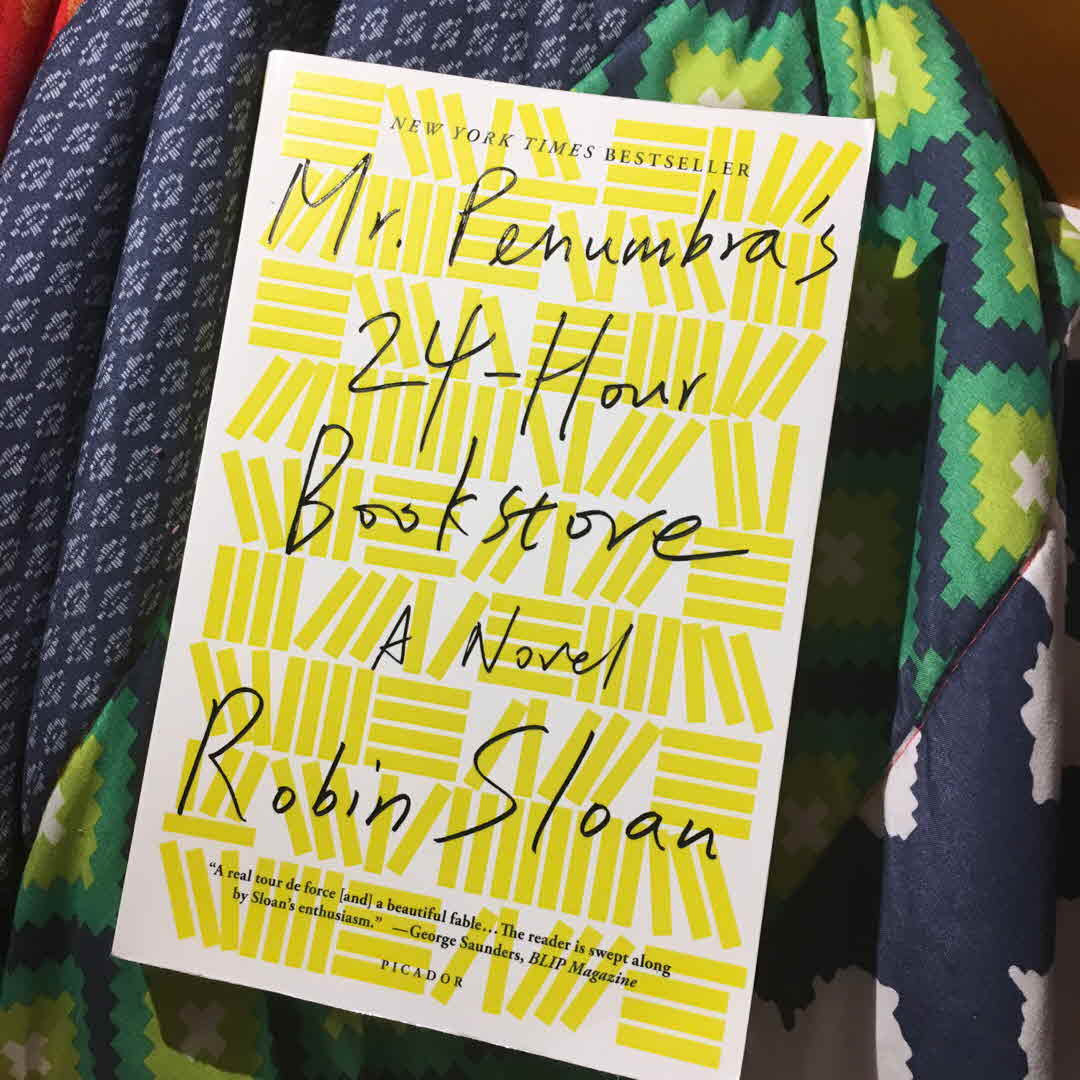 NEW YORK TIMES BESTSELLER
Mr. Penumbra's
24-Hour
Bookstore
A Novel
Robin Sloan
“A real tour de force [and] a beautiful fable… The reader is swept along
by Sloan’s enthusiasm.” —George Saunders, BLIP Magazine
PICADOR